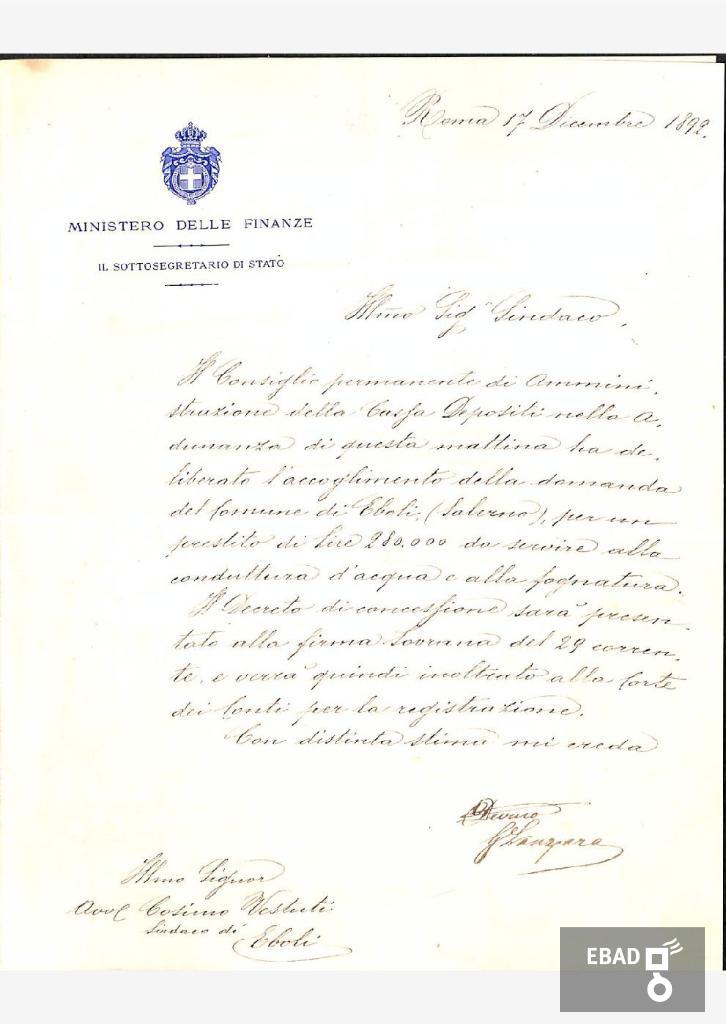 Roma 17 Dicembre 1892.
MINISTERO DELLE FINANZE
IL SOTTOSEGRETARIO DI STATO
Illmo Sigr Sindaco,
Il Consiglio permanente di Ammini,
strazione della Cassa Depositi nella A,
dunanza di questa mattina ha de,
liberato l'accoglimento della domanda
del Comune di Eboli, (Salerno), per un
prestito di lire 280.000 da servire alla
conduttura d'acqua e alla fognatura.
Il Decreto di concessione sarà presen,
tato alla firma Sovrana del 29 corren,
te, e verrà quindi inoltrato alla Corte
dei Conti per la registrazione.
Con distinta stima mi creda
Devmo
G Lanzara
Illmo Signor
Avv Cosimo Vestuti
Sindaco di
Eboli
EBAD